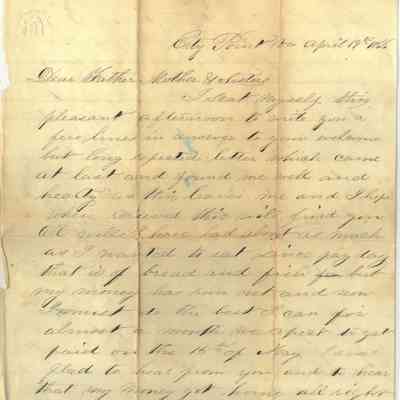 City Point Va April 19th 186
Dear Father Mother & Sisters
I Seat myself this
pleasant afternoon to write you a
few lines in answer to your welcome
but long expected letter which came
at last and found me well and
hearty as this leaves me and I hope
when received this will find you
all well I have had about as much
as I wanted to eat since pay day
that is of bread and pies but
my money has run out and now
I must do the best I can for
almost a month we expect to get
paid on the 15th of May I was
glad to hear from you and to hear
that my money got home all right